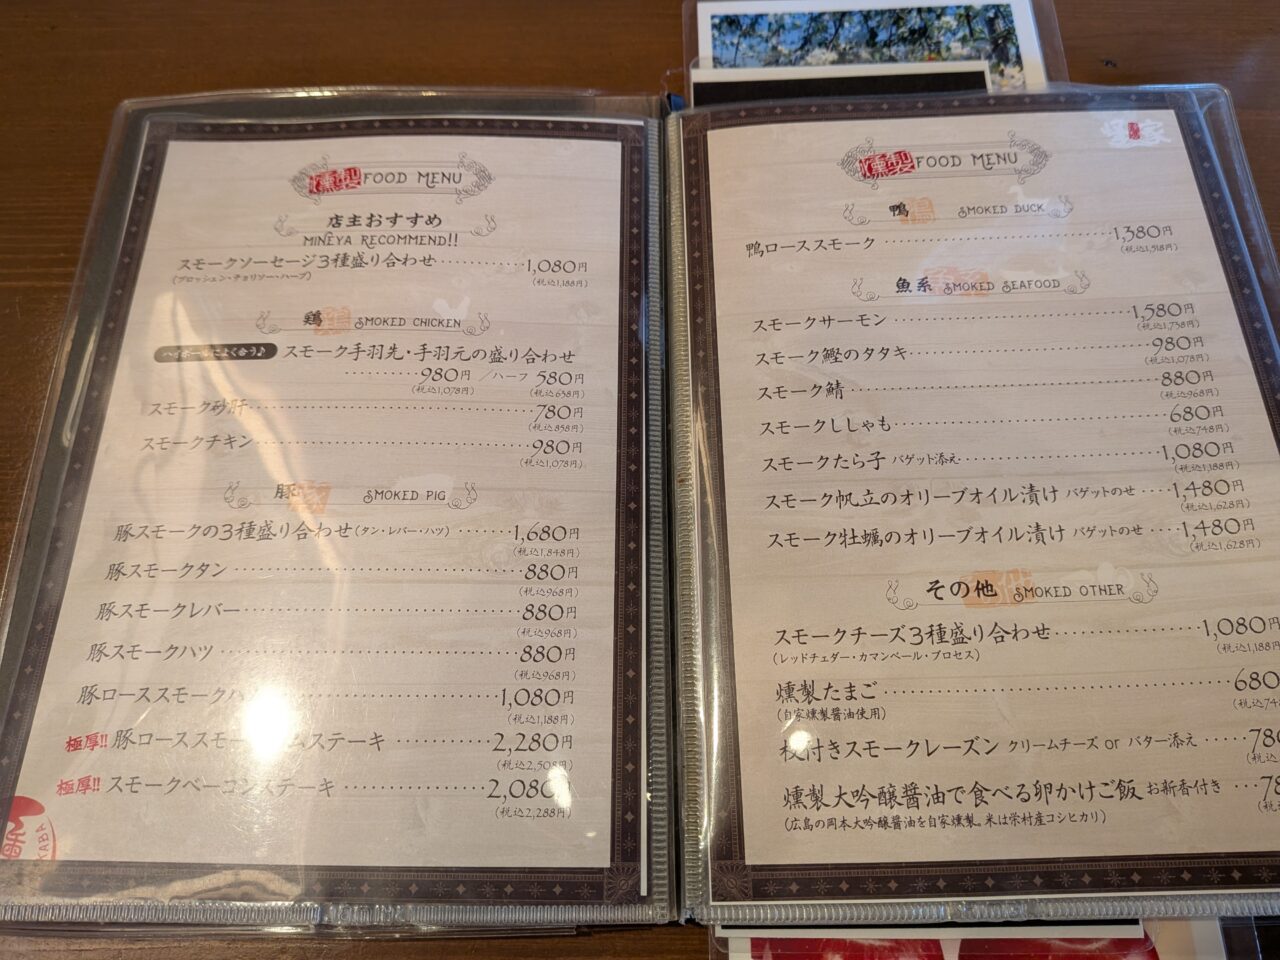 燻製 FOOD MENU
店主おすすめ
MINEYA RECOMMEND!!
スモークソーセージ3種盛り合わせ 1,080円
(ブロッシェン・チョリソー・ハーブ) (税込1,188円)
鶏 SMOKED CHICKEN
ハイボールによく合う♪ スモーク手羽先・手羽元の盛り合わせ
980円 /ハーフ 580円
(税込1,078円) (税込638円)
スモーク砂肝 780円
(税込858円)
スモークチキン 980円
(税込1,078円)
豚 SMOKED PIG
豚スモークの3種盛り合わせ(タン・レバー・ハツ) 1,680円
(税込1,848円)
豚スモークタン 880円
(税込968円)
豚スモークレバー 880円
(税込968円)
豚スモークハツ 880円
(税込968円)
豚ローススモークハ 1,080円
(税込1,188円)
極厚!! 豚ローススモー ムステーキ 2,280円
(税込2,508円)
極厚!! スモークベーコンステーキ 2,080
(税込2,288円)
燻製 FOOD MENU
鴨 SMOKED DUCK
鴨ローススモーク 1,380円
(税込1,518円)
魚系 SMOKED SEAFOOD
スモークサーモン 1,580円
(税込1,738円)
スモーク鰹のタタキ 980円
(税込1,078円)
スモーク鯖 880円
(税込968円)
スモークししゃも 680円
(税込748円)
スモークたら子 バゲット添え 1,080円
(税込1,188円)
スモーク帆立のオリーブオイル漬け バゲットのせ 1,480円
(税込1,628円)
スモーク牡蠣のオリーブオイル漬け バゲットのせ 1,480円
(税込1,628円)
その他 SMOKED OTHER
スモークチーズ3種盛り合わせ 1,080円
(レッドチェダー・カマンベール・プロセス) (税込1,188
燻製たまご 680
(自家燻製醤油使用) (税込74
枝付きスモークレーズン クリームチーズ or バター添え 780
(税込
燻製大吟醸醤油で食べる卵かけご飯 お新香付き 78
(広島の岡本大吟醸醤油を自家燻製。米は栄村産コシヒカリ)